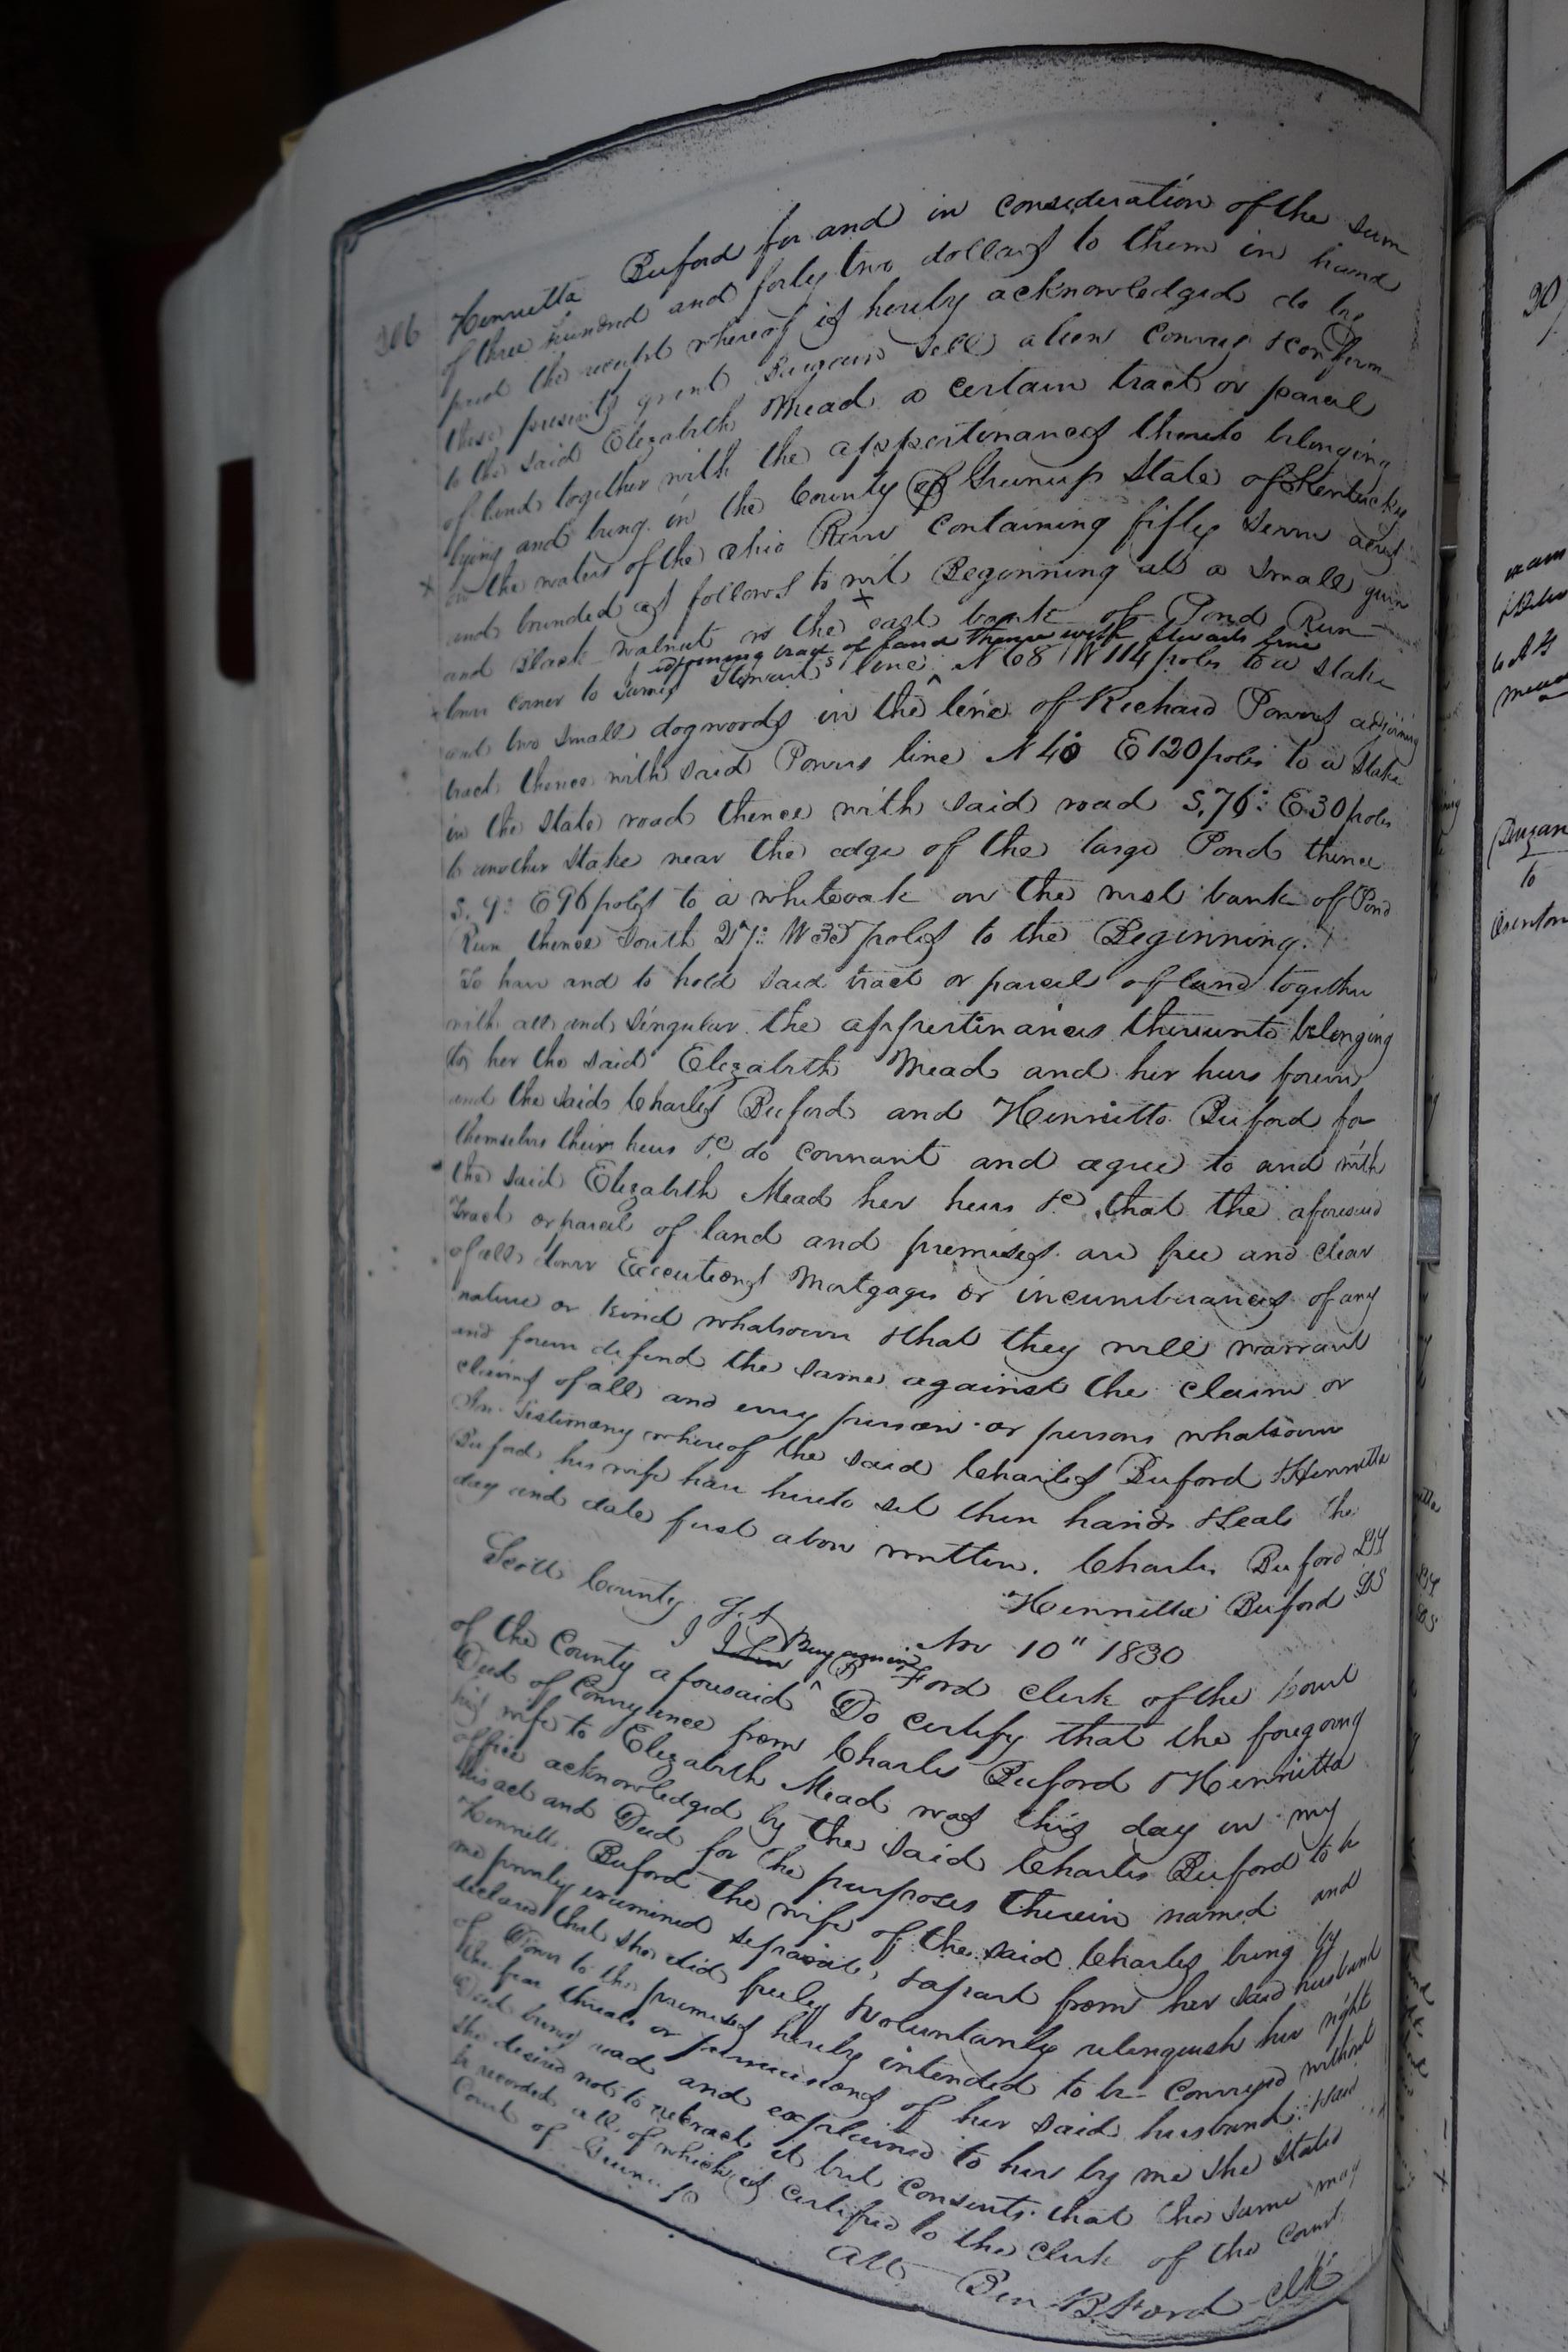 306
Henrietta Buford for and in consideration of the sum
of three hundred and forty two dollars to them in hand
paid the receipt whereof is hereby acknowledged do by
these presents grant Bargain Sell alien Convey & confirm
to the said Elizabeth Mead a certain tract or parcel
of land together with the appertinances thereto belonging
lying and being in the County of Greenup State of Kentucky
on the waters of the Ohio River Containing fifty seven acres
and bounded as follows to wit Beginning at a small gum
and Black walnut on the east bank of Pond Run
lower corner to James Stewarts adjoining tract of land thence with Stewarts line
line N 68 W 114 poles to a stake
and two small dogwoods in the line of Richard Powers adjoining
tract thence with said Powers line N 40 E 120 poles to a stake
in the state road thence with said road S. 76° E 30 poles
to another stake near the edge of the large Pond thence
S. 9° E 96 poles to a whiteoak on the west bank of Pond
Run thence South 27° W 33 poles to the Beginning.
To have and to hold said tract or parcel of land together
with all and singular the appertinances thereunto belonging
to her the said Elizabeth Mead and her heirs forever
and the said Charles Buford and Henrietta Buford for
themselves their heirs &c do covenant and agree to and with
the said Elizabeth Mead her heirs &c that the aforesaid
Tract or parcel of land and premises are free and clear
of all dower Executions Mortgages or incumberances of any
nature or kind whatsoever & that they will warrant
and forever defend the same against the claim or
claims of all and every person or persons whatsoever
In Testimony whereof the said Charles Buford & Henrietta
Buford his wife have hereto set their hands & seals the
day and date first above written. Charles Buford LS
Henrietta Buford LS
Scott County Sct Nov 10" 1830
I John Benjamin B Ford clerk of the Court
of the County aforesaid Do certify that the foregoing
Deed of Conveyance from Charles Buford & Henrietta
his wife to Elizabeth Mead was this day in my
office acknowledged by the said Charles Buford to be
his act and Deed for the purposes therein named and
Henriett Buford the wife of the said Charles being by
me privily examined separate & apart from her said husband
declared that she did freely & voluntarily relinquish her right
of Dower to the premises hereby intended to be conveyed without
the fear threats or persuasions of her said husband
Deed being read and explained to her by me she stated
she desired not to retract it but consents that the same may
be recorded all of which is certified to the Clerk of the County
Court of Greenup
Att Ben B Ford clk
30
exam
Mead
Duzan
to